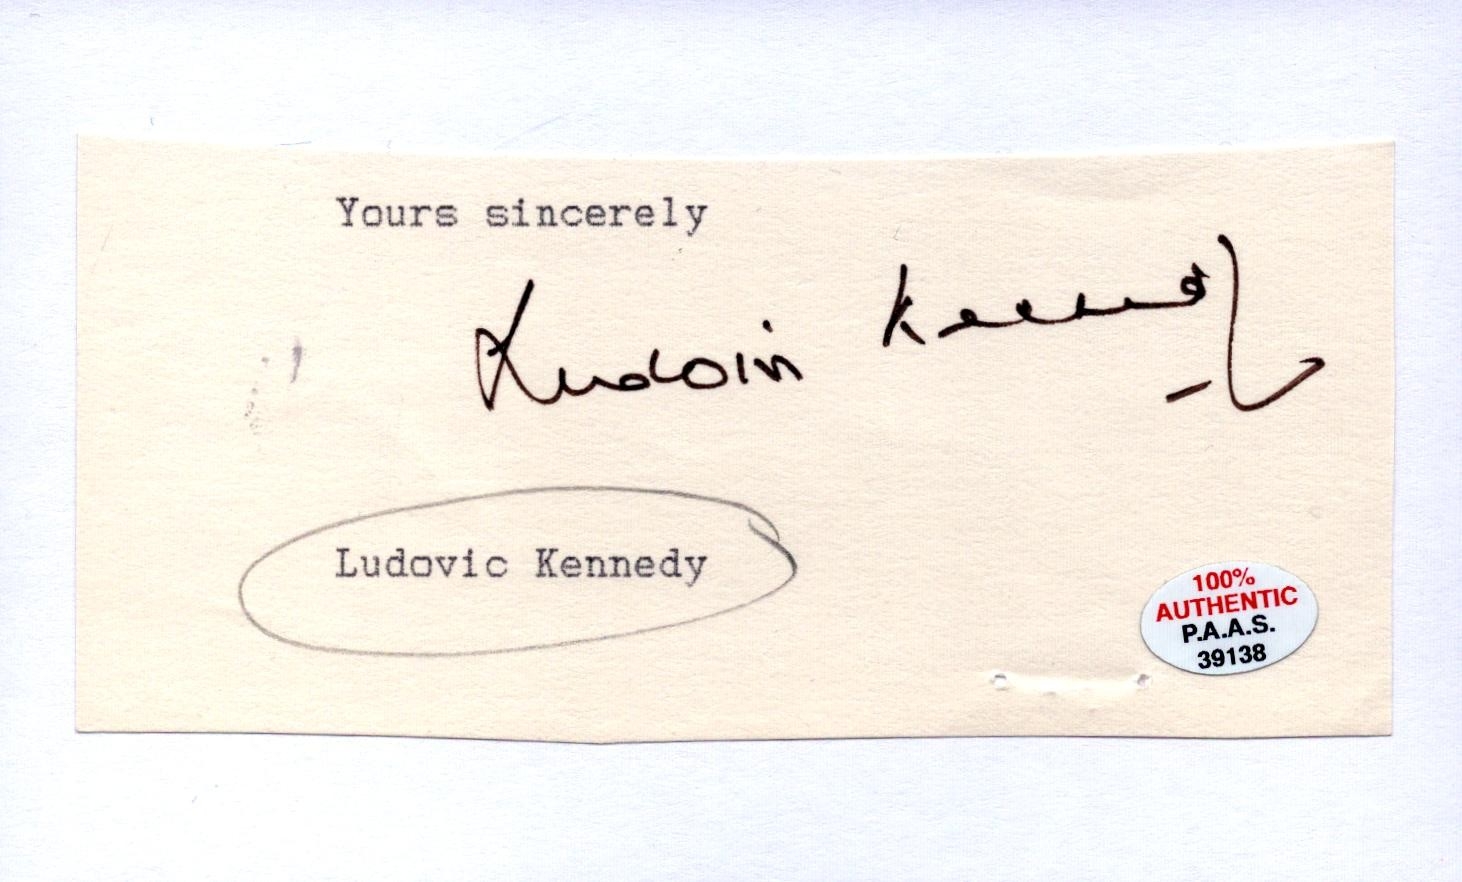 Yours sincerely
Ludovic Kennedy
Ludovic Kennedy
100%
AUTHENTIC
P.A.A.S.
39138